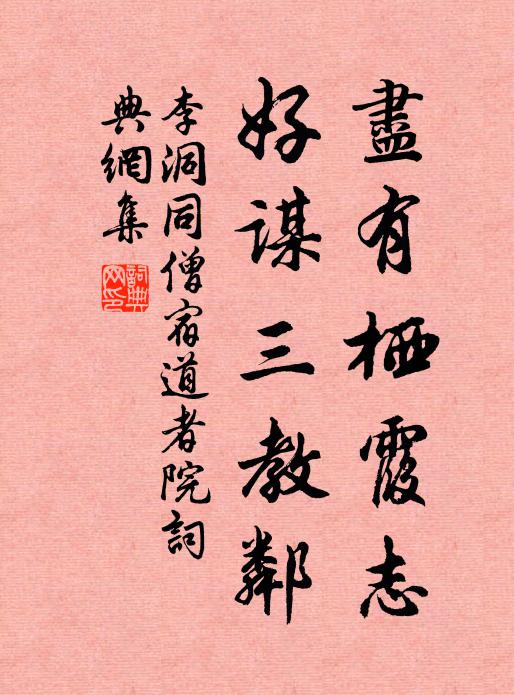 盡有栖霞志
好謀三教鄰
李洞同僧宿道者院詞
典網集
詞典网印